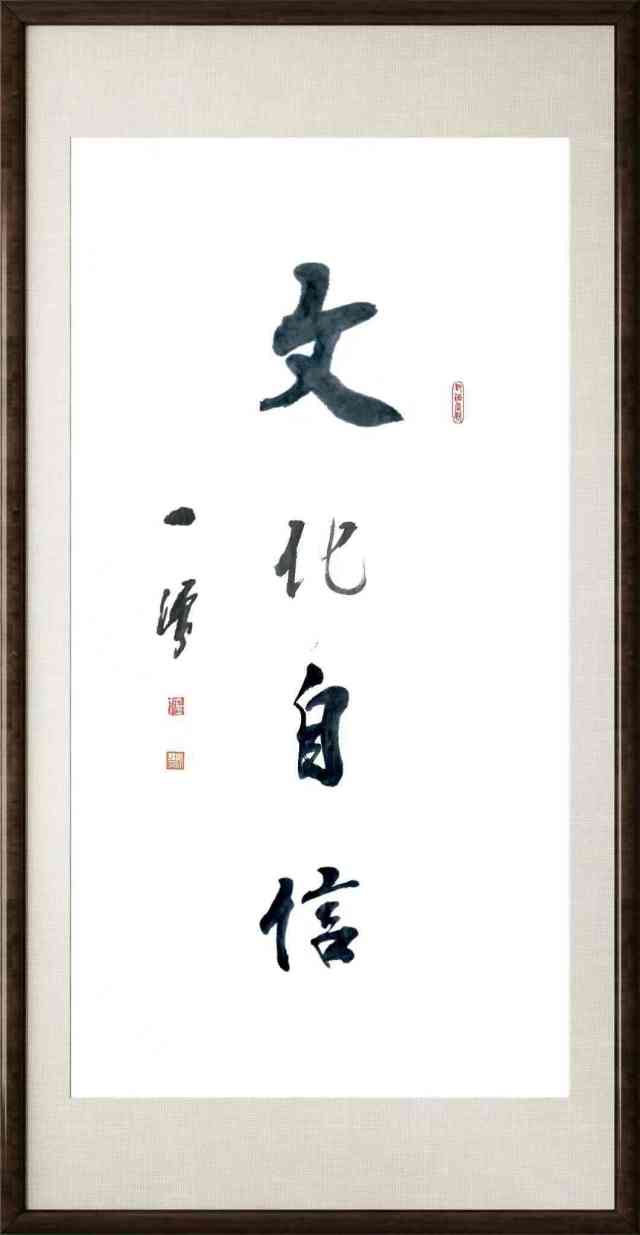 文化自信
一